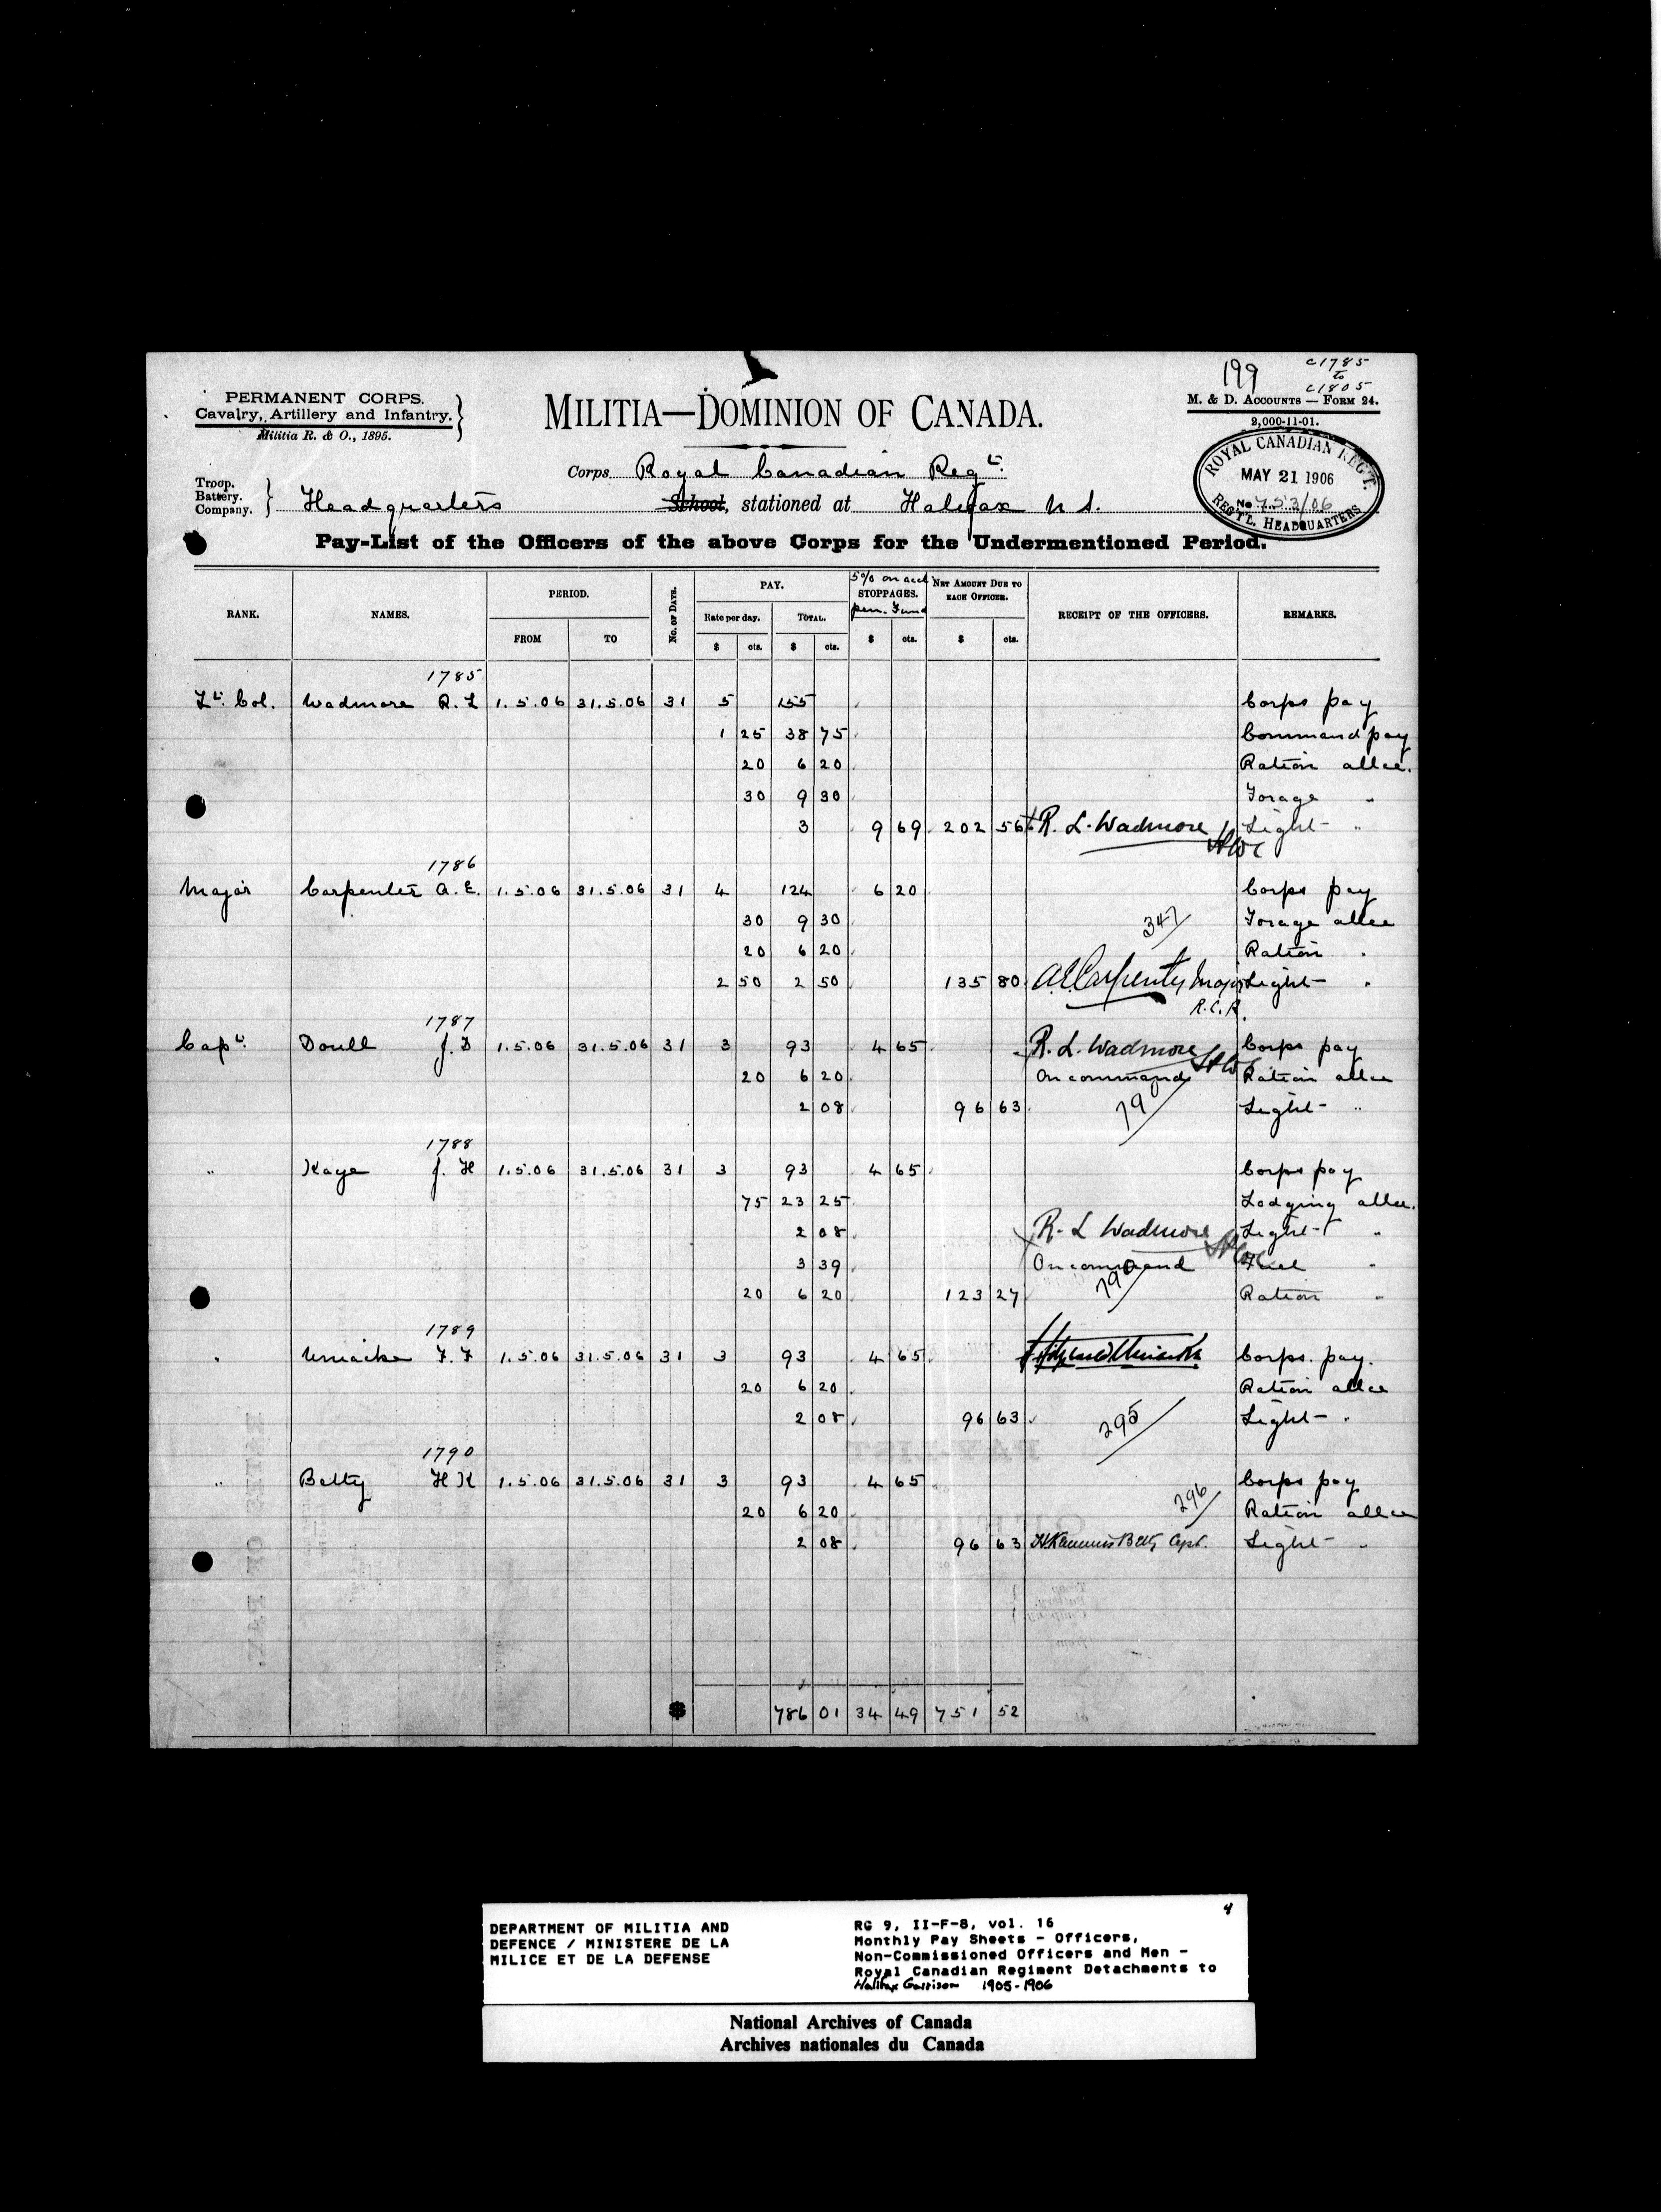 199
c1785
to
c1805
PERMANENT CORPS.
Cavalry, Artillery and Infantry.
Militia R. & O., 1895.
MILITIA—DOMINION OF CANADA.
M. & D. ACCOUNTS — FORM 24.
2,000-11-01.
ROYAL CANADIAN REG'T.
MAY 21 1906
No 753/06
REG'T'L. HEADQUARTERS
Corps Royal Canadian Regt.
Troop.
Battery.
Company.
Headquarters
School, stationed at Halifax N S.
Pay-List of the Officers of the above Corps for the Undermentioned Period.
RANK. NAMES. PERIOD. FROM TO No. OF DAYS. PAY. Rate per day. TOTAL. $ cts. $ cts. 5% on acct STOPPAGES. pen. Fund $ cts. NET AMOUNT DUE TO EACH OFFICER. $ cts. RECEIPT OF THE OFFICERS. REMARKS.
1785
Lt. Col. Wadmore R. L 1.5.06 31.5.06 31 5 155 Corps pay
1 25 38 75 Command pay
20 6 20 Ration allce.
30 9 30 Forage "
3 9 69 202 56 R. L. Wadmore Light "
1786
Major Carpenter A. E. 1.5.06 31.5.06 31 4 124 6 20 Corps pay
30 9 30 347 Forage allce
20 6 20 Ration "
2 50 2 50 135 80 A.E. Carpenter Major Light "
R.C.R.
1787
Capt. Doull J. D 1.5.06 31.5.06 31 3 93 4 65 R. L. Wadmore Corps pay
20 6 20 On command Ration allce
2 08 96 63 790 Light "
1788
" Kaye J. H 1.5.06 31.5.06 31 3 93 4 65 Corps pay
75 23 25 Lodging allce.
2 08 R. L Wadmore Light "
3 39 On command Fuel "
20 6 20 123 27 790 Ration "
1789
" Uniacke F. F 1.5.06 31.5.06 31 3 93 4 65 Corps. pay.
20 6 20 Ration allce
2 08 96 63 295 Light "
1790
" Betty H K 1.5.06 31.5.06 31 3 93 4 65 Corps pay
20 6 20 296 Ration allce
2 08 96 63 H Kemmis Betty Capt. Light "
$ 786 01 34 49 751 52
4
DEPARTMENT OF MILITIA AND
DEFENCE / MINISTERE DE LA
MILICE ET DE LA DEFENSE
RG 9, II-F-8, vol. 16
Monthly Pay Sheets - Officers,
Non-Commissioned Officers and Men -
Royal Canadian Regiment Detachments to
Halifax Garrison 1905-1906
National Archives of Canada
Archives nationales du Canada